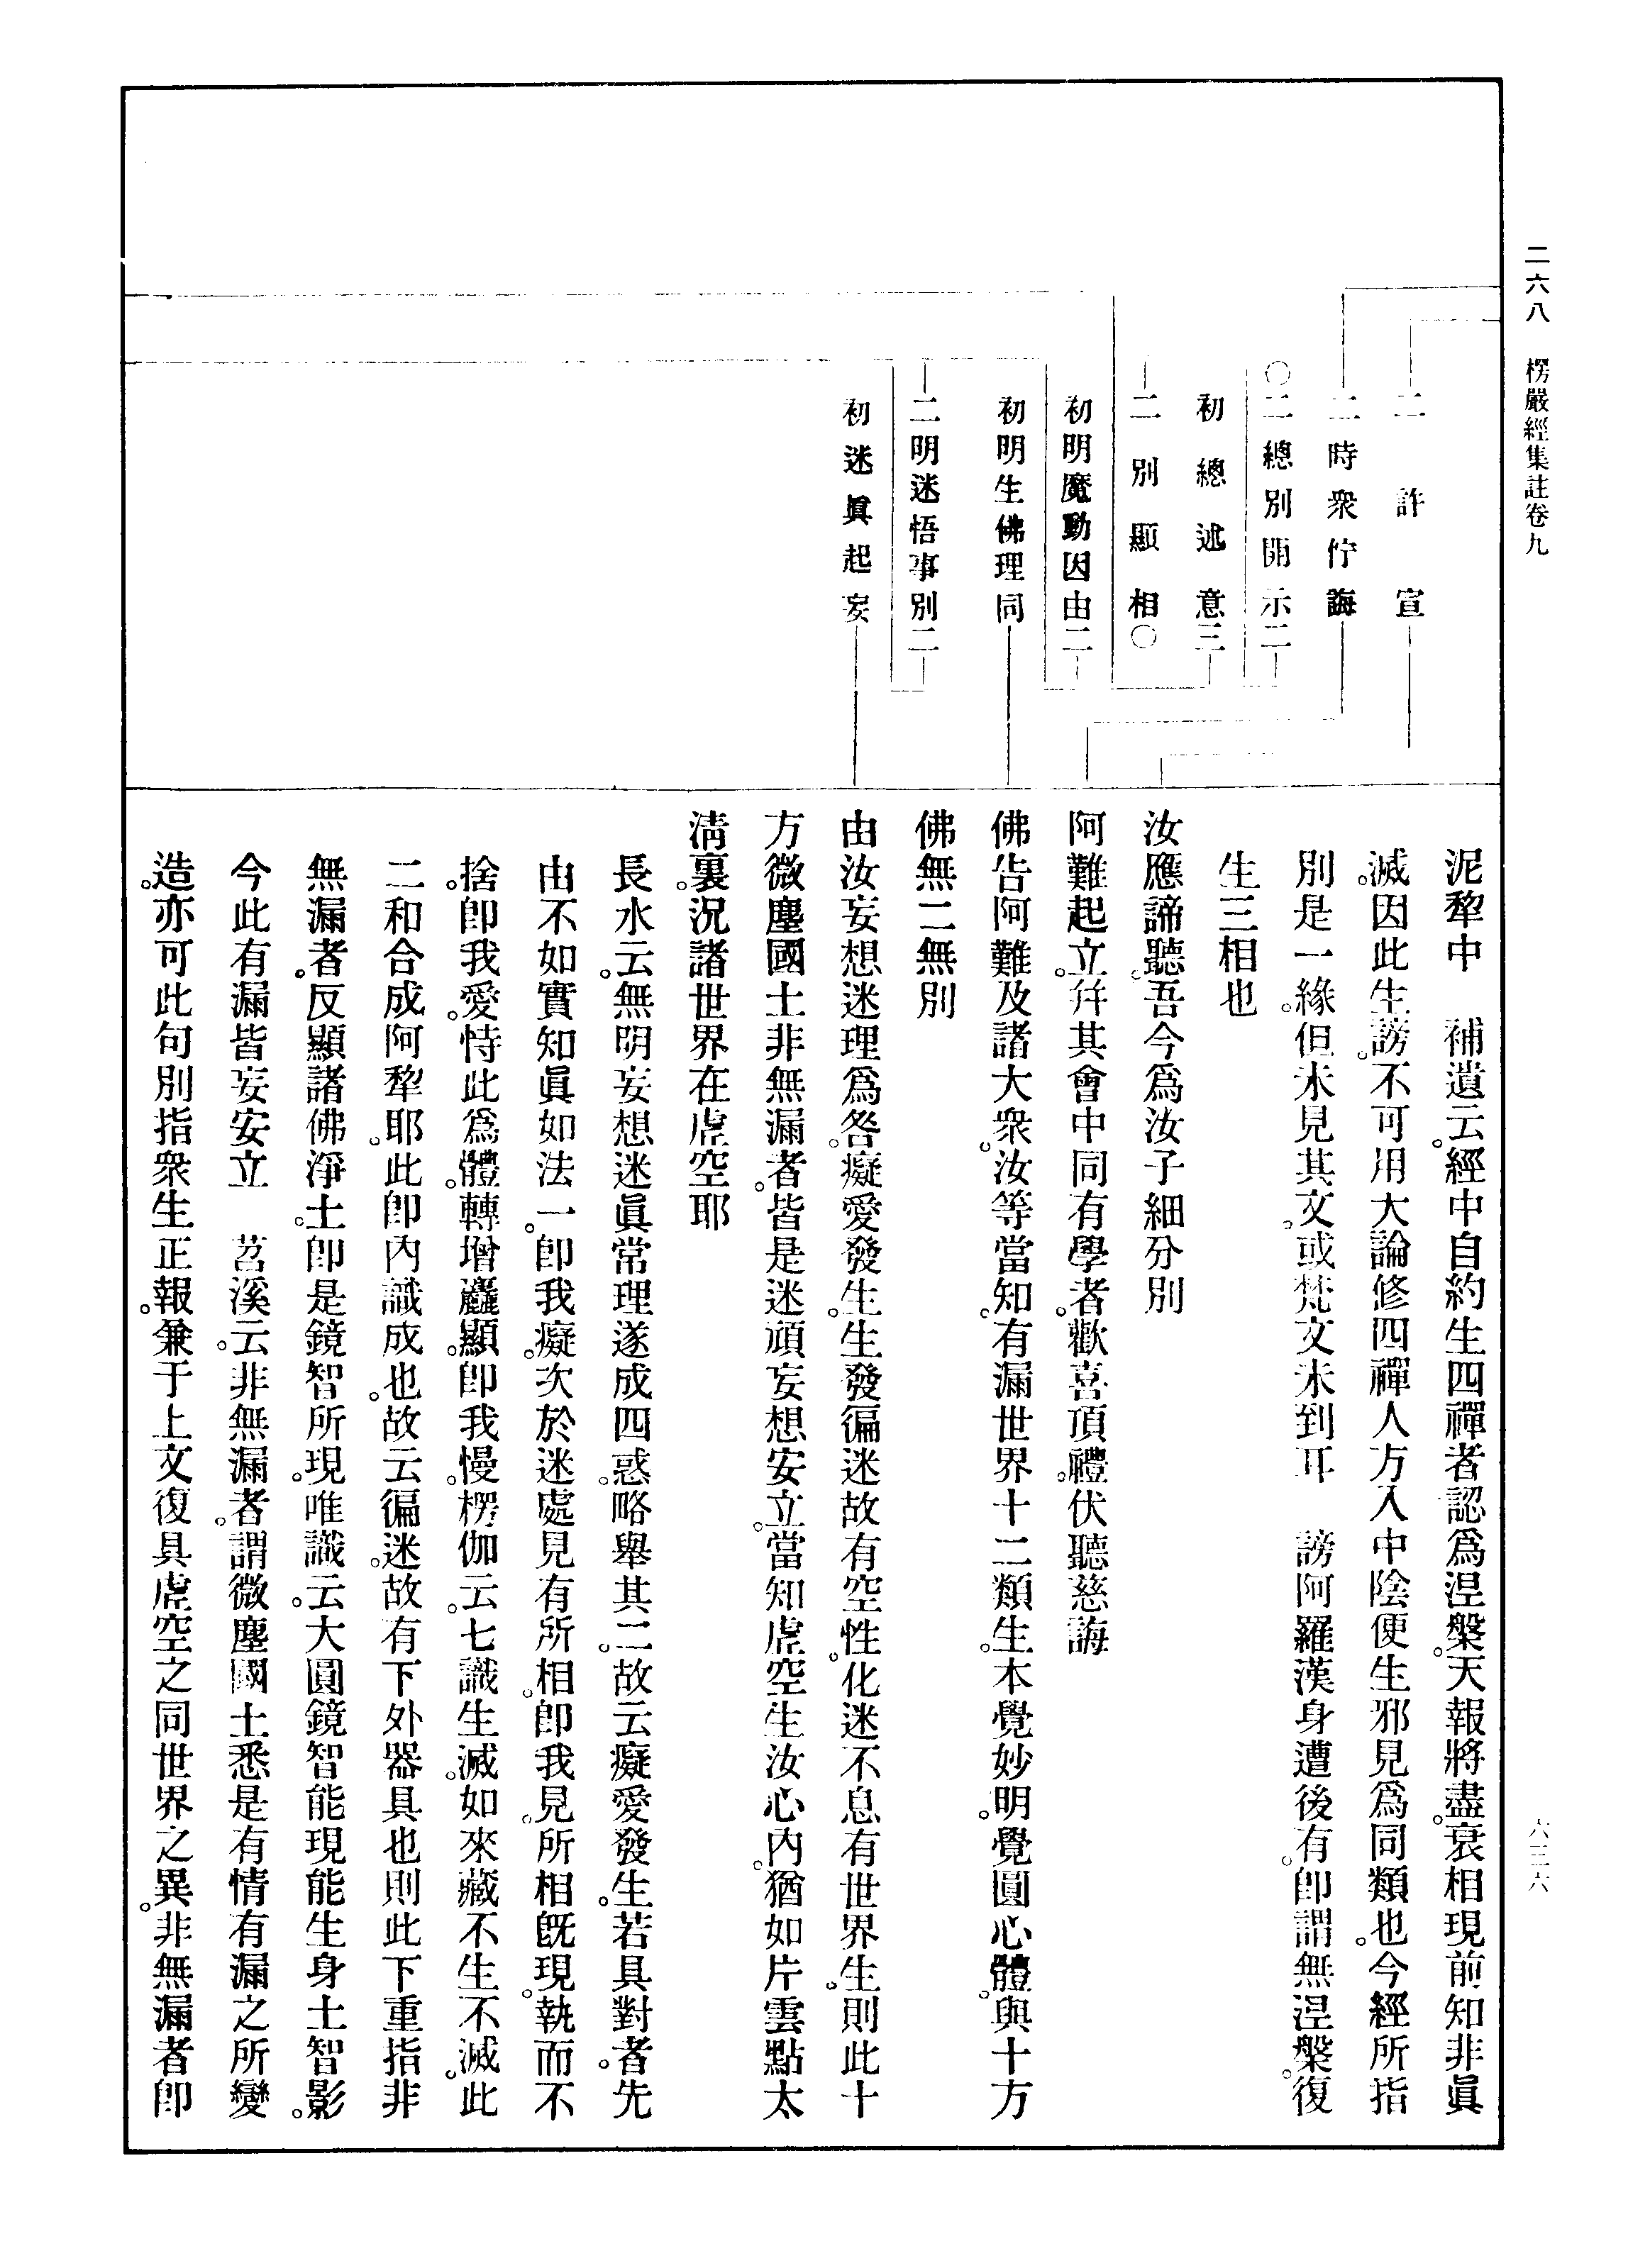 二六八　楞嚴經集註卷九
六三六
二許宣
二時衆佇誨
○二總別開示二
初總述意三
二別顯相○
初明魔動因由二
初明生佛理同
二明迷悟事別二
初迷眞起妄
泥犂中　補遺云。經中自約生四禪者認爲涅槃。天報將盡。衰相現前知非眞
滅。因此生謗。不可用大論修四禪人方入中陰便生邪見爲同類也。今經所指
別是一緣。但未見其文。或梵文未到耳　謗阿羅漢身遭後有。卽謂無涅槃。復
生三相也
汝應諦聽。吾今爲汝子細分別
阿難起立。幷其會中同有學者。歡喜頂禮。伏聽慈誨
佛告阿難及諸大衆。汝等當知。有漏世界十二類生。本覺妙明。覺圓心體。與十方
佛無二無別
由汝妄想迷理爲咎。癡愛發生。生發徧迷故有空性。化迷不息有世界生。則此十
方微塵國土非無漏者。皆是迷頑妄想安立。當知虛空生汝心內。猶如片雲點太
淸裏。況諸世界在虛空耶
長水云。無明妄想迷眞常理遂成四惑。略舉其二。故云癡愛發生。若具對者。先
由不如實知眞如法一。卽我癡。次於迷處見有所相。卽我見。所相旣現。執而不
捨。卽我愛。恃此爲體。轉增麤顯。卽我慢。楞伽云。七識生滅。如來藏不生不滅。此
二和合成阿犂耶。此卽內識成也。故云徧迷。故有下外器具也則此下重指非
無漏者。反顯諸佛淨土。卽是鏡智所現。唯識云。大圓鏡智能現能生身土智影。
今此有漏皆妄安立　苕溪云。非無漏者。謂微塵國土悉是有情有漏之所變
造。亦可此句別指衆生正報。兼于上文復具虛空之同世界之異。非無漏者卽